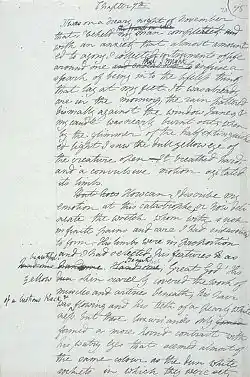 Chapter 7th
It was on a dreary night of November
that I beheld my man completed, and
with an anxiety that almost amount
ed to agony I collected instruments of life
around me that I might infuse a
spark of being into the lifeless thing
that lay at my feet. It was already
one in the morning, the rain pattered
dismally against the window panes &
my candle was nearly burnt out, when
by the glimmer of the half extinguish
ed light I saw the dull yellow eye of
the creature open. It breathed hard
and a convulsive motion agitated
its limbs.
But how can I describe my
emotion at this catastrophe, or how deli
neate the wretch whom with such
infinite pains and care I had endeavoured
to form. His limbs were in proportion
and I had selected his features as
beautiful handsome. Handsome, great God! His
yellow skin scarcely covered the work of
muscles and arteries beneath; his hair
of a lustrous black &
was flowing and his teeth of a pearly white
ness but these luxuriances only
formed a more horrid contrast with
his watery eyes that seemed almost of
the same colour as the dun white
sockets in which they were set